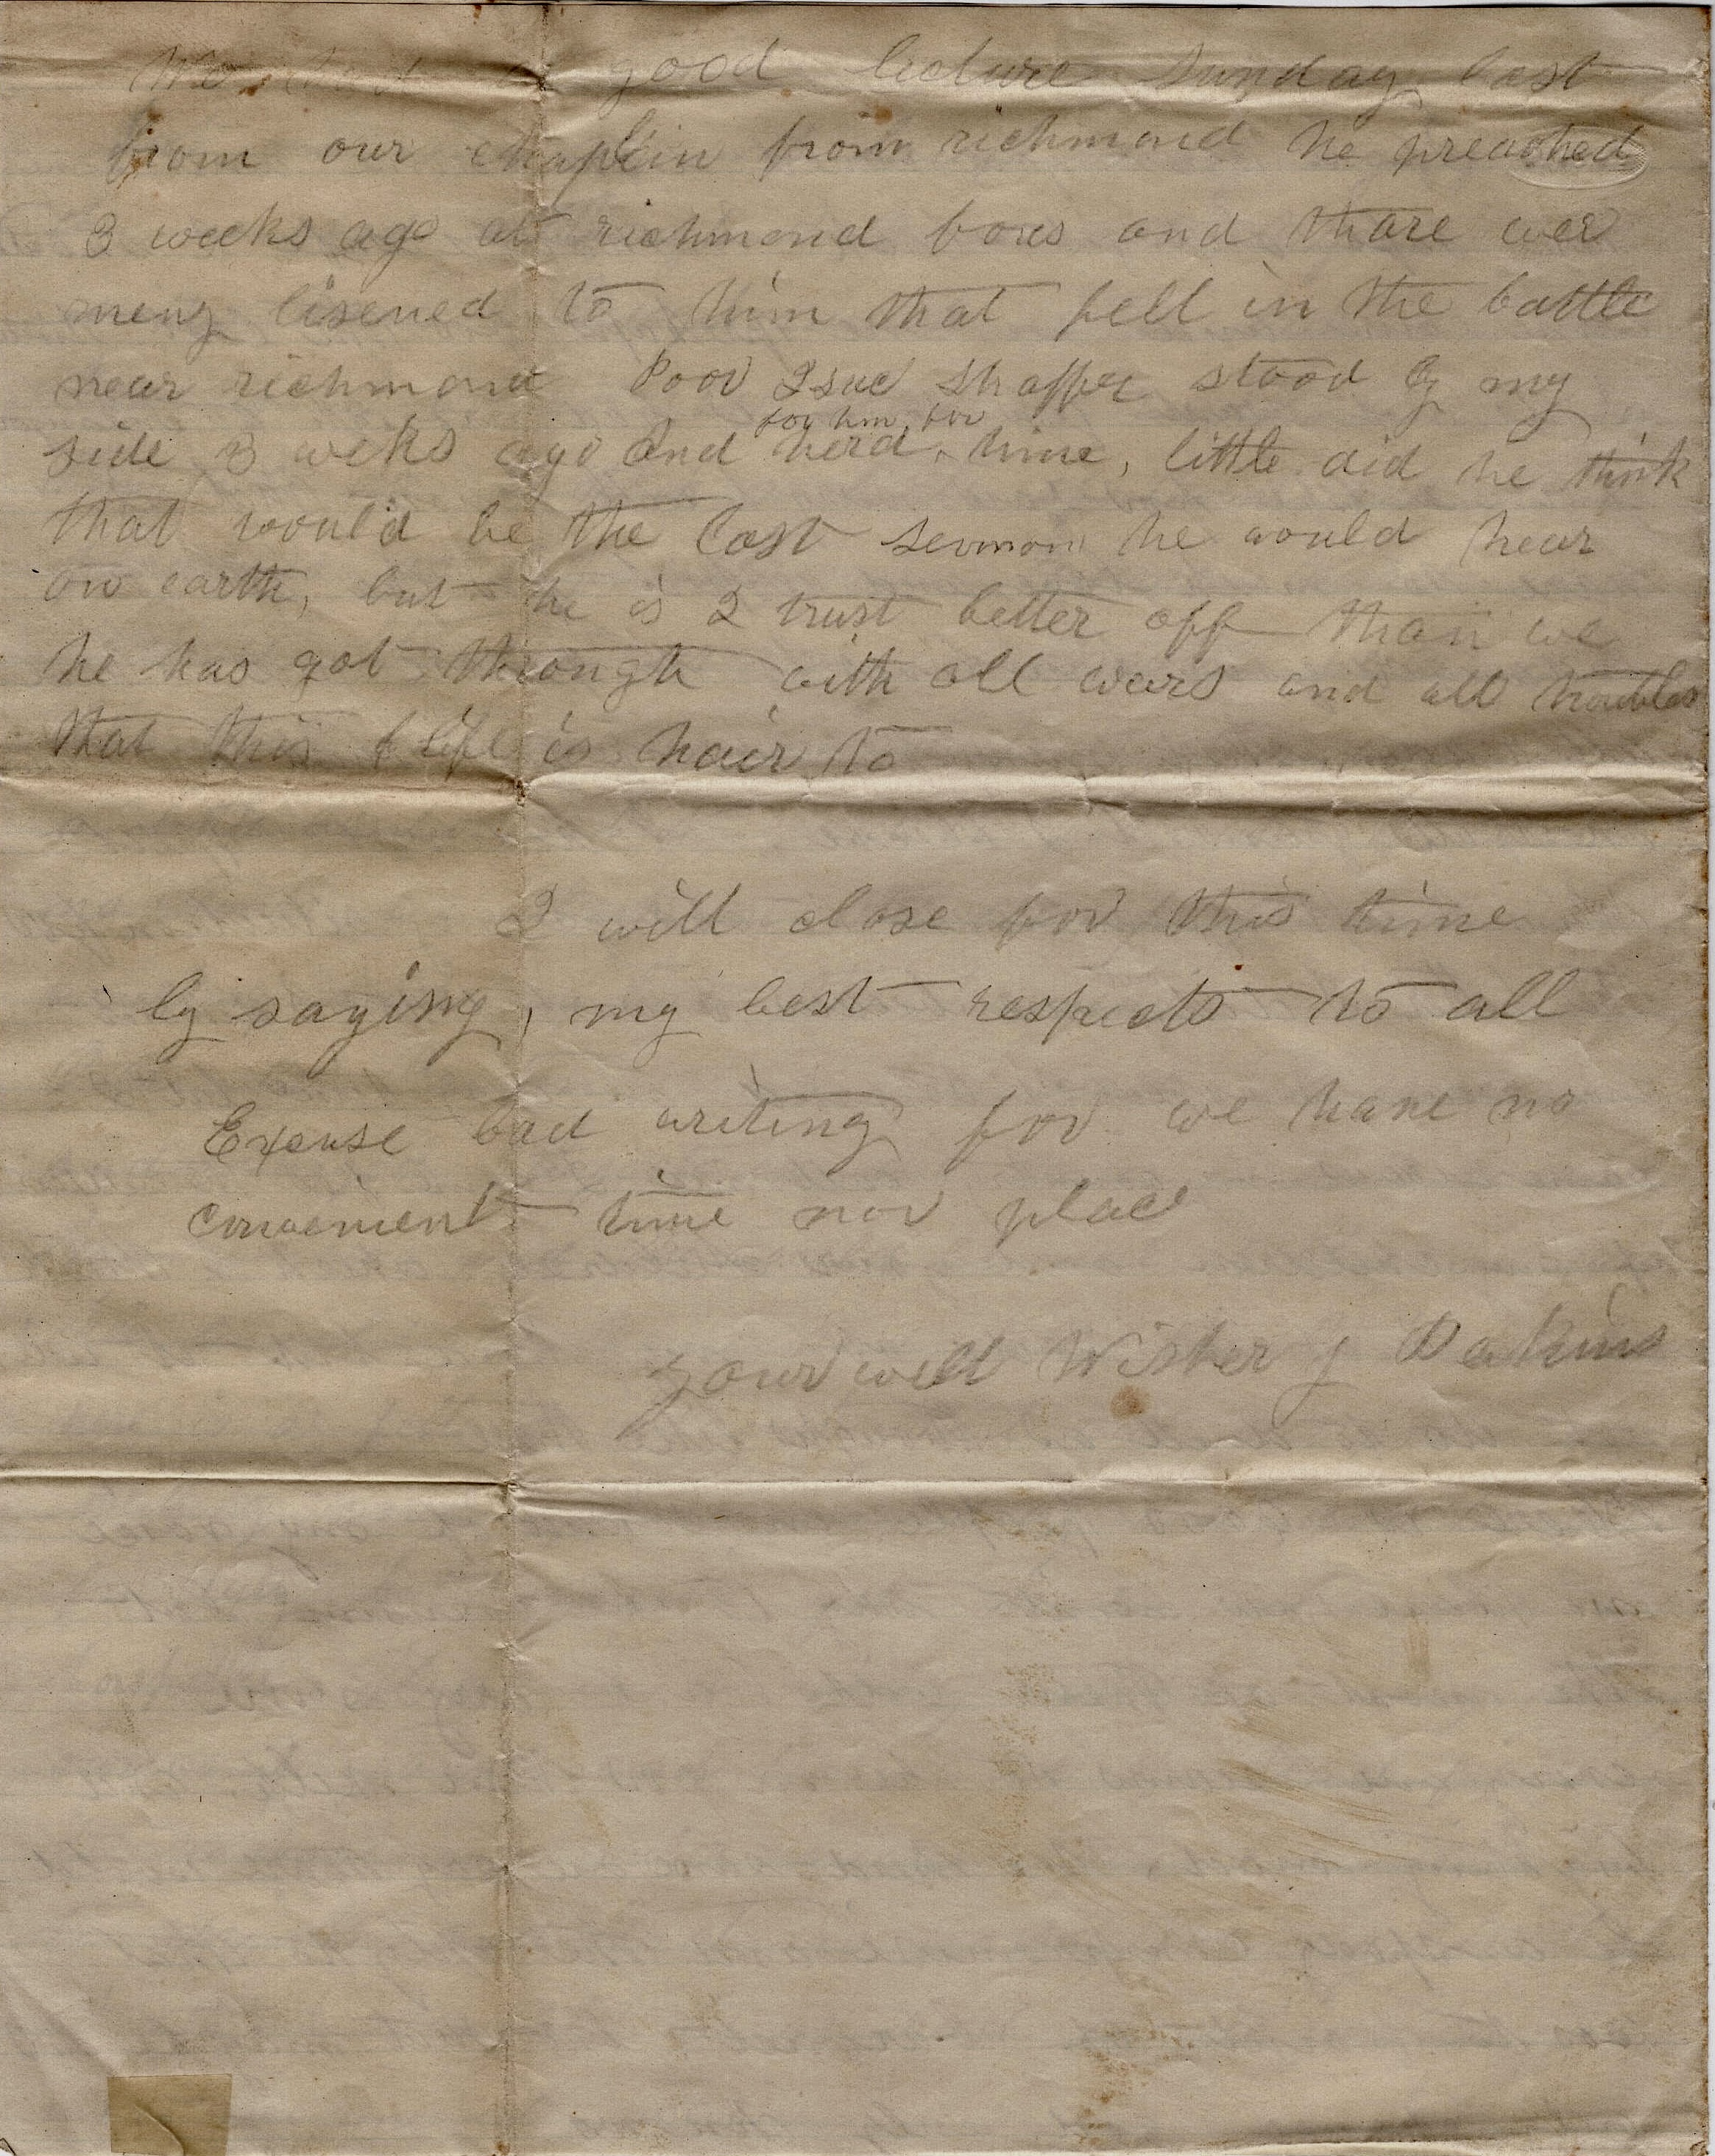 We had a good lecture Sunday last
from our chaplin from richmond he preached
3 weeks ago at richmond and thare wer
meny lisened to him that fell in the battle
near richmond Poor Isac Shaffer stood by my
side 3 weks ago and herd him, little did he think
that would be the last sermon he would hear
on earth, but he is I trust better off than we
he has got through with all wars and all troubles
that this life is hair to
I will close for this time
by saying, my best respects to all
Excuse bad writing for we have no
convenient time nor place
your well Wisher J